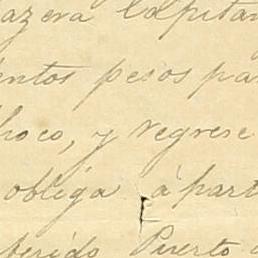 azera Capitan
entos pesos pa
hoco, y regrese
obliga á part
berido Puerto